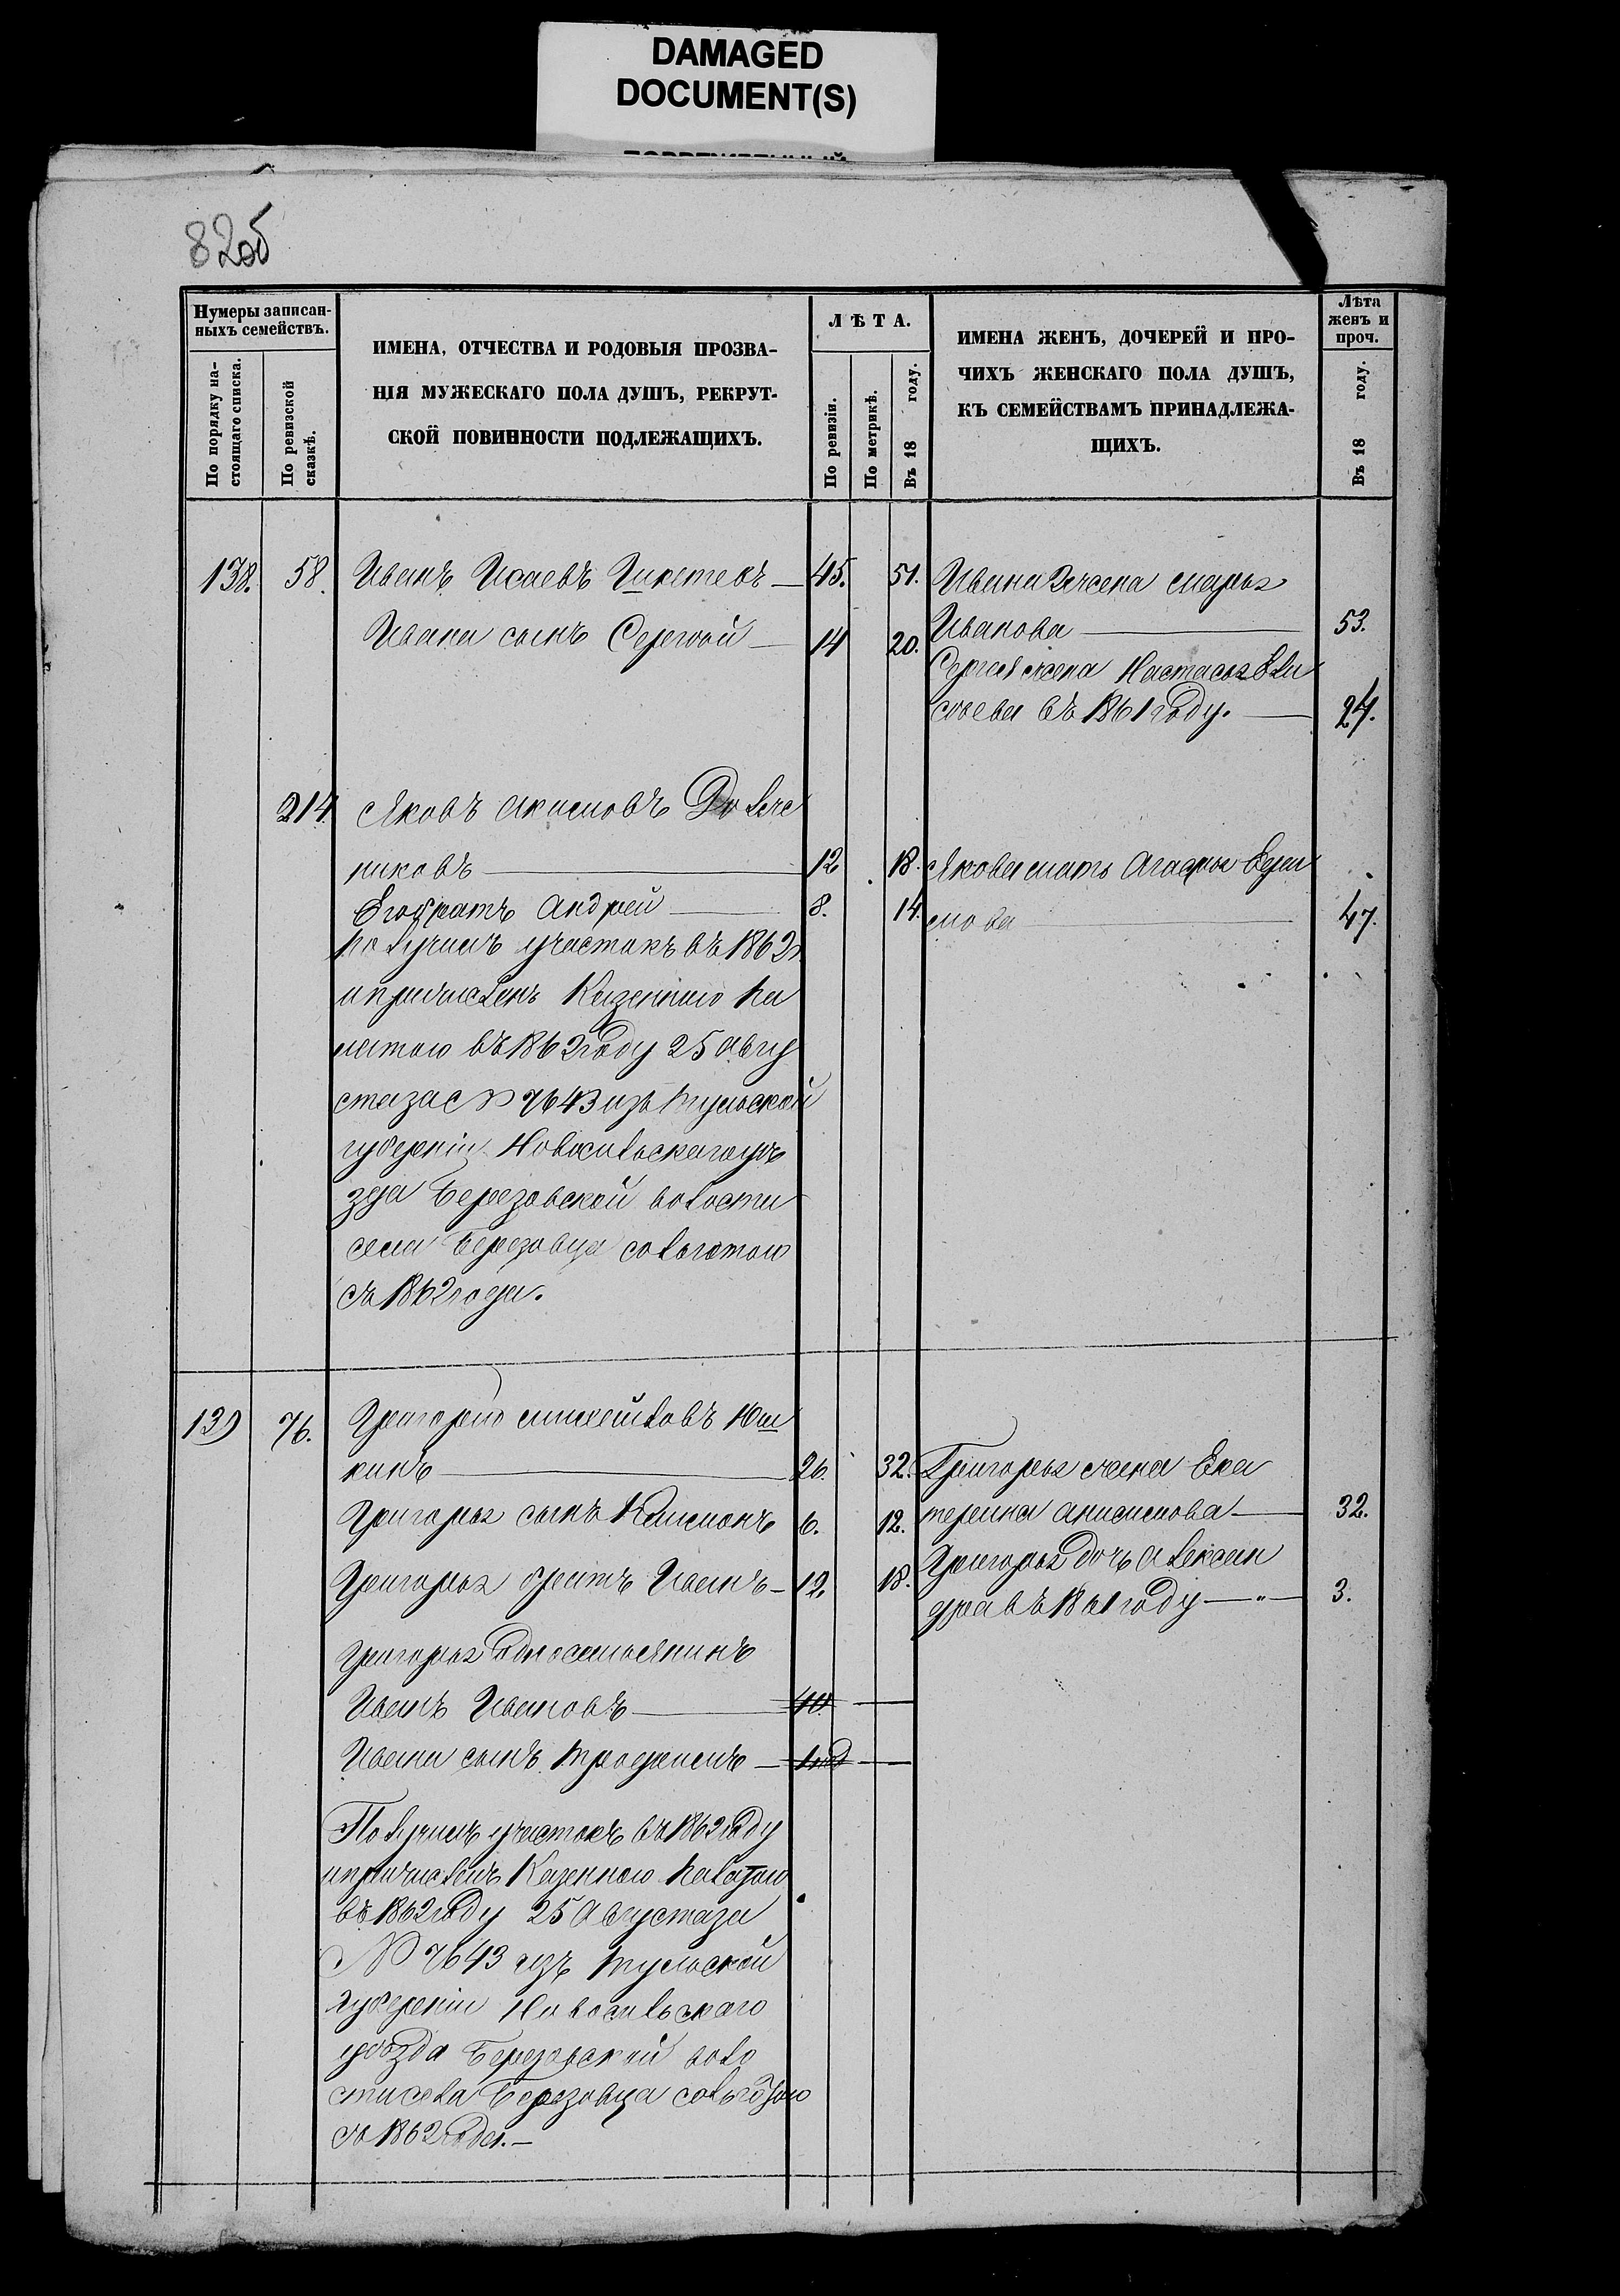 DAMAGED
DOCUMENT(S)
82об
Нумеры записан-
ныхъ семействъ.
По порядку на-
стоящаго списка.
По ревизской
сказкѣ.
ИМЕНА, ОТЧЕСТВА И РОДОВЫЯ ПРОЗВА-
НІЯ МУЖЕСКАГО ПОЛА ДУШЪ, РЕКРУТ-
СКОЙ ПОВИННОСТИ ПОДЛЕЖАЩИХЪ.
ЛѢТА.
По ревизіи.
По метрикѣ.
Въ 18 году.
ИМЕНА ЖЕНЪ, ДОЧЕРЕЙ И ПРО-
ЧИХЪ ЖЕНСКАГО ПОЛА ДУШЪ,
КЪ СЕМЕЙСТВАМЪ ПРИНАДЛЕЖА-
ЩИХЪ.
Лѣта
женъ и
проч.
Въ 18 году.
138. 58. Иванъ Исаевъ 45. 51.
Ивана сынъ Сергѣй 14 20.
Ивана жена Марья
Иванова 53.
Сергея жена Настасья Ели
сѣева въ 1861 году. 24.
214 Яковъ Акимовъ Долже
никовъ 12 18.
Его братъ Андрей 8. 14.
Якова мать Агафья Ефи
мова 47.
получилъ участокъ въ 1862 г.
и причисленъ Казенною Па
латою въ 1862 году 25 Авгу
ста за № 7643 изъ Тульской
губерніи Новосильскаго уѣ
зда Березовской волости
села Березовца со льготою
съ 1862 года.
139 76. Григорій Михайловъ Юш
кинъ 26. 32.
Григорья сынъ Филимонъ 6. 12.
Григорья братъ Иванъ 12. 18.
Григорья жена Ека
терина Анисимова 32.
Григорья дочь Алексан
дра въ 1861 году 3.
Григорья односемьянинъ
Иванъ Ивановъ 40
Ивана сынъ Трофимъ
Получилъ участокъ въ 1862 году
и причисленъ Казенною Палатою
въ 1862 году 25 Августа за
№ 7643 изъ Тульской
губерніи Новосильскаго
уѣзда Березовской воло
сти села Березовца со льготою
съ 1862 года.